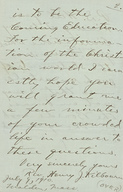 2.
is to be the
Coming Education
for the information
of the Christ
ian world I earn
estly hope you
will grant me
a few minutes
of your crowded
life in answer to
these question
Very sincerely yours
Rev. Henry J. Kilbourn
July
Mass